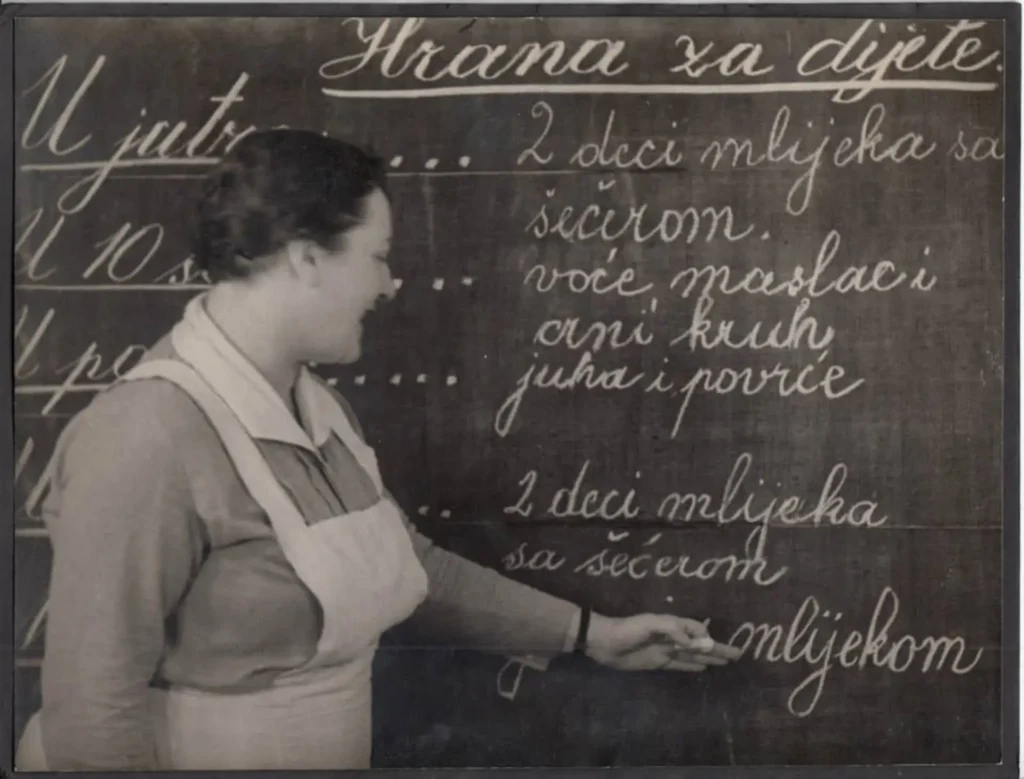 Hrana za dijete.
U jutr .... 2 deci mlijeka sa
šećirom.
U 10 s .... voće, maslac i
crni kruh
U po ..... juha i povrće
.. 2 deci mlijeka
sa šećerom
mlijekom